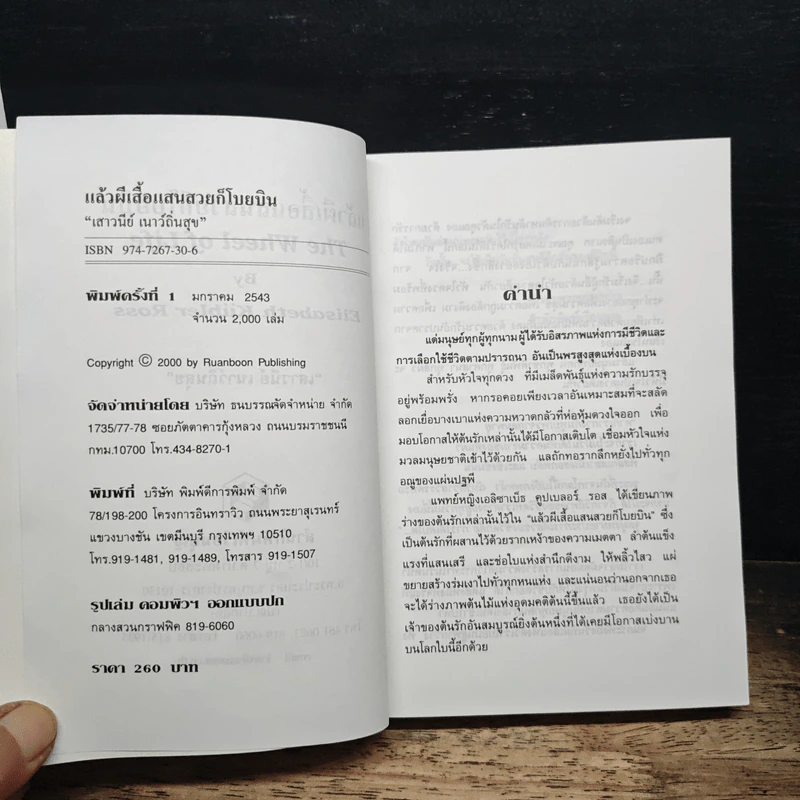 แล้วผีเสื้อแสนสวยก็โบยบิน
“เสาวนีย์ เนาว์ถิ่นสุข”
ISBN 974-7267-30-6
พิมพ์ครั้งที่ 1 มกราคม 2543
จำนวน 2,000 เล่ม
Copyright © 2000 by Ruanboon Publishing
จัดจำหน่ายโดย บริษัท ธนบรรณจัดจำหน่าย จำกัด
1735/77-78 ซอยภัตตาคารกุ้งหลวง ถนนบรมราชชนนี
กทม.10700 โทร.434-8270-1
พิมพ์ที่ บริษัท พิมพ์ดีการพิมพ์ จำกัด
78/198-200 โครงการอินทราวิว ถนนพระยาสุเรนทร์
แขวงบางชัน เขตมีนบุรี กรุงเทพฯ 10510
โทร.919-1481, 919-1489, โทรสาร 919-1507
รูปเล่ม คอมพิวฯ ออกแบบปก
กลางสวนกราฟฟิค 819-6060
ราคา 260 บาท
คำนำ
แด่มนุษย์ทุกผู้ทุกนามผู้ได้รับอิสรภาพแห่งการมีชีวิตและ
การเลือกใช้ชีวิตตามปรารถนา อันเป็นพรสูงสุดแห่งเบื้องบน
สำหรับหัวใจทุกดวง ที่มีเมล็ดพันธุ์แห่งความรักบรรจุ
อยู่พร้อมพรั่ง หากรอคอยเพียงเวลาอันเหมาะสมที่จะสลัด
ลอกเยื่อบางเบาแห่งความหวาดกลัวที่ห่อหุ้มดวงใจออก เพื่อ
มอบโอกาสให้ต้นรักเหล่านั้นได้มีโอกาสเติบโต เชื่อมหัวใจแห่ง
มวลมนุษยชาติเข้าไว้ด้วยกัน แลถักทอรากลึกหยั่งไปทั่วทุก
อณูของแผ่นปฐพี
แพทย์หญิงเอลิซาเบ็ธ คูปเบลอร์ รอส ได้เขียนภาพ
ร่างของต้นรักเหล่านั้นไว้ใน “แล้วผีเสื้อแสนสวยก็โบยบิน” ซึ่ง
เป็นต้นรักที่ผสานไว้ด้วยรากเหง้าของความเมตตา ลำต้นแข็ง
แรงที่แสนเสรี และช่อใบแห่งสำนึกดีงาม ให้พลิ้วไสว แผ่
ขยายสร้างร่มเงาไปทั่วทุกหนแห่ง และแน่นอนว่านอกจากเธอ
จะได้ร่างภาพต้นไม้แห่งอุดมคติต้นนี้ขึ้นแล้ว เธอยังได้เป็น
เจ้าของต้นรักอันสมบูรณ์ยิ่งต้นหนึ่งที่ได้เคยมีโอกาสเบ่งบาน
บนโลกใบนี้อีกด้วย